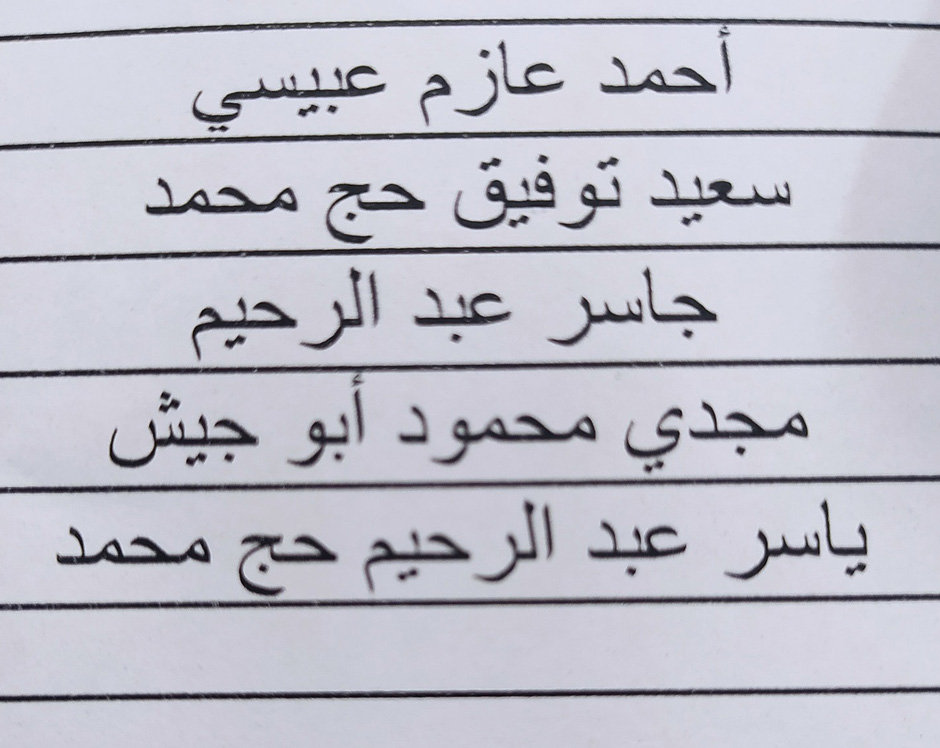 أحمد عازم عبيسي
سعيد توفيق حج محمد
جاسر عبد الرحيم
مجدي محمود أبو جيش
ياسر عبد الرحيم حج محمد